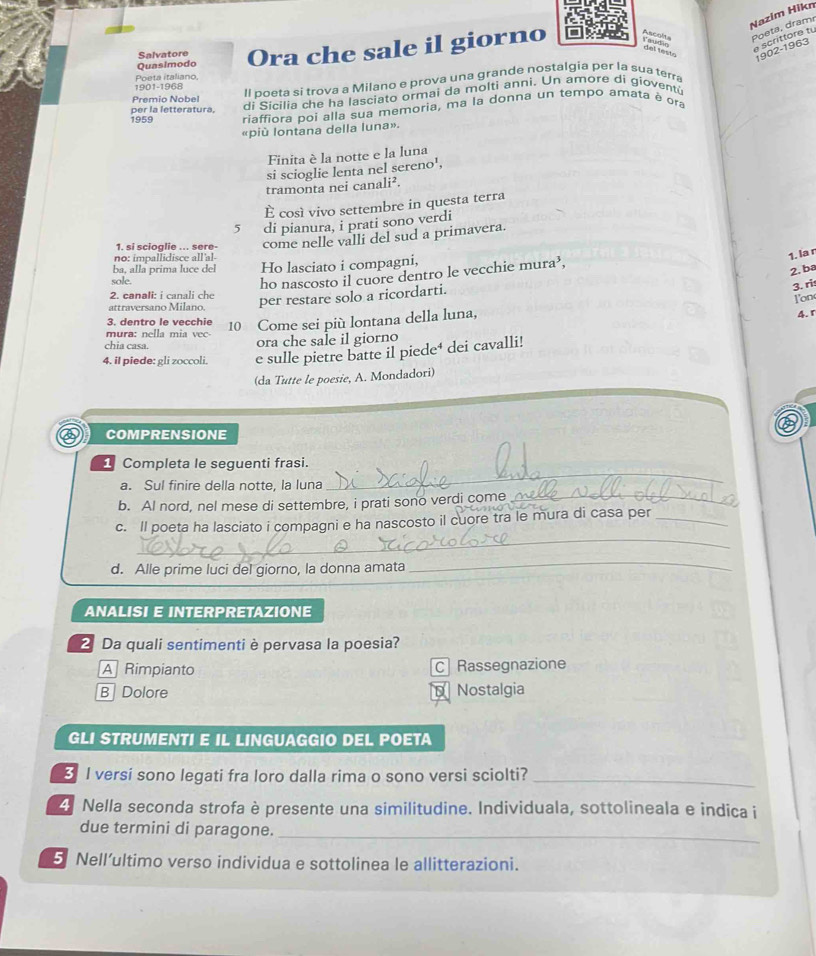 Nazim Hikm
Poeta, dramr
e scrittore tu
1902-1963
Ascolta
l'audio
del testo
Ora che sale il giorno
Salvatore
Quasimodo
Poeta italiano,
1901-1968
Premio Nobel
per la letteratura,
1959
Il poeta si trova a Milano e prova una grande nostalgia per la sua terra
di Sicilia che ha lasciato ormai da molti anni. Un amore di gioventù
riaffiora poi alla sua memoria, ma la donna un tempo amata è ora
«più lontana della luna».
Finita è la notte e la luna
si scioglie lenta nel sereno¹,
tramonta nei canali².
È così vivo settembre in questa terra
5 di pianura, i prati sono verdi
come nelle valli del sud a primavera.
Ho lasciato i compagni,
ho nascosto il cuore dentro le vecchie mura³,
per restare solo a ricordarti.
10 Come sei più lontana della luna,
ora che sale il giorno
e sulle pietre batte il piede⁴ dei cavalli!
(da Tutte le poesie, A. Mondadori)
1. si scioglie ... sere-
no: impallidisce all'al-
ba, alla prima luce del
sole.
2. canali: i canali che
attraversano Milano.
3. dentro le vecchie
mura: nella mia vec-
chia casa.
4. il piede: gli zoccoli.
1. la r
2. ba
3. ris
l'on
4. r
COMPRENSIONE
1 Completa le seguenti frasi.
a. Sul finire della notte, la luna si scioglie lenta
b. Al nord, nel mese di settembre, i prati sono verdi come nelle valli del sud a
primavera
c. Il poeta ha lasciato i compagni e ha nascosto il cuore tra le mura di casa per
restare solo a ricordare
d. Alle prime luci del giorno, la donna amata
ANALISI E INTERPRETAZIONE
2 Da quali sentimenti è pervasa la poesia?
A Rimpianto
B Dolore
C Rassegnazione
D Nostalgia
GLI STRUMENTI E IL LINGUAGGIO DEL POETA
3 I versi sono legati fra loro dalla rima o sono versi sciolti?
4 Nella seconda strofa è presente una similitudine. Individuala, sottolineala e indica i
due termini di paragone.
5 Nell'ultimo verso individua e sottolinea le allitterazioni.